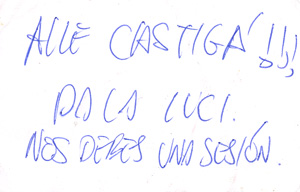 ALLÉ CASTIGÁ!!!
PA LA LUCI.
NOS DEBES UNA SESIÓN.